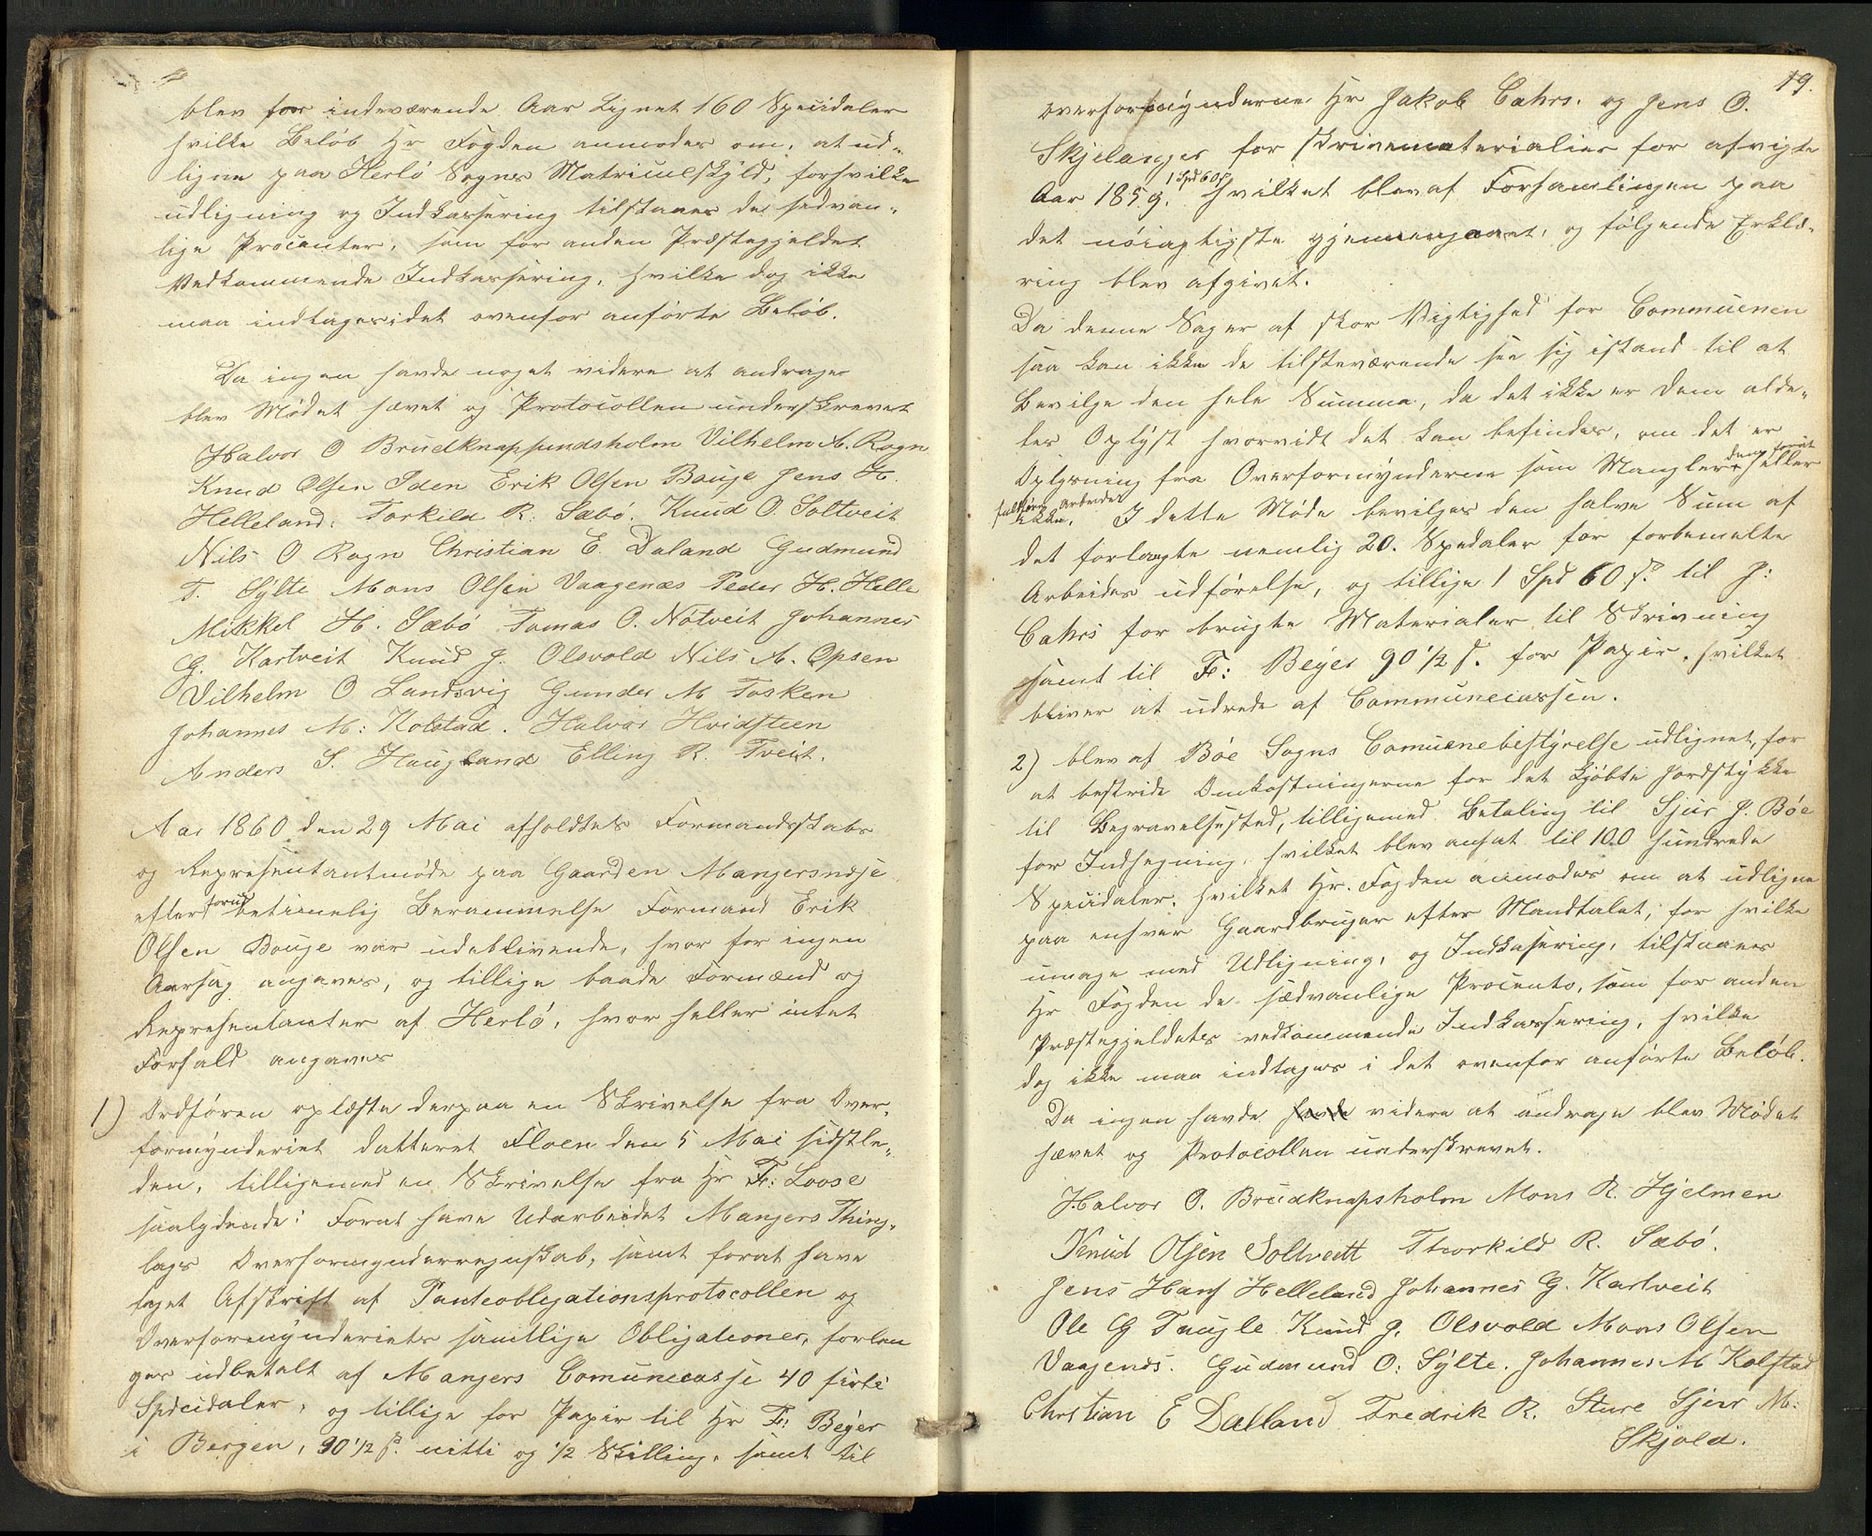 blev for indeværende Aar Lignet 160 Speciedaler
hvilke Beløb Hr Fogden anmodes om, at ud-
ligne paa Herlø Sogns Matriculskyld, forhvilke
udligning og Indkassering tilstaaes de sedvan-
lige Procenter, som for anden Præstegjeldet
Vedkommende Indkassering, hvilke dog ikke
maa indtages i det ovenfor anførte Beløb.
Da ingen havde noget videre at andrage
blev Mødet hævet og Protocollen underskrevet
Halvor O Brudknapsundsholm Vilhelm A. Rogn
Knud Olsen Iden Erik Olsen Bouge Jens H.
Helleland. Torkild R. Sæbö. Knud O. Soltveit
Nils O Rogn Christian E. Daland Gudmund
T. Sylte Mons Olsen Vaagenæs Peder H. Helle
Mikkel H. Sæbö Tomas O. Nötveit Johannes
G. Kartveit Knud J. Olsvold Nils A. Opsen
Vilhelm O Landsvig Gunder M Tosken
Johannes M: Kolstad. Halvor Hvidsteen
Anders S. Haugland Elling R. Tveit.
Aar 1860 den 29 Mai afholdtes Formandsskabs
og Representantmøde paa Gaarden Mangersnæsje
efter forud betimelig Berammelse Formand Erik
Olsen Bouge var udeblivende, hvor for ingen
Aarsag angaves, og tillige baade Formænd og
Representanter af Herlö, hvor heller intet
Forfald angaves
1) Ordføren oplæste derpaa en Skrivelse fra Over-
formynderiet datteret Floen den 5 Mai sidstle-
den, tilligemed en Skrivelse fra Hr Fr: Loose
saalydende: Forat have Udarbeidet Mangers Thing-
lags Overformynderregnskab, samt forat have
taget Afskrift af Panteobligationsprotocollen og
Overformynderiets samtlige Obligationer, forlan
ges udbetalt af Mangers Comunecasse 40 firti
Speciedaler, og tillige for Papir til Hr Fr: Beyer
i Bergen, 90 1/2 s. nitti og 1/2 Skilling, samt til
19.
overformynderne Hr Jakob Cahrs. og Jens O.
Skjelanger for skrivematerialier for afvigte
Aar 1859. 1 Spd 60 s hvilket blev af Forsamlingen paa
det nöiagtigste gjennemgaaet, og følgende Erklæ-
ring blev afgivet.
Da denne Sag er af stor Vigtighed for Communen
saa kan ikke de tilstæværende see sig istand til at
Bevilge den hele Summa, da det ikke er dem alde-
les Oplyst hvorvidt det kan befindes, om det er
Oplysning fra Overformynderne som Mangler eller
ikke. I dette Møde bevilges den halve Sum af
det forlangte nemlig 20. Spedaler for forbemelte
Arbeides udførelse, og tillige 1 Spd 60 s. til J:
Cahrs for brugte Materialer til Skrivning
samt til Fr: Beyer 90 1/2 s. for Papir. hvilket
bliver at udrede af Communecassen.
2) blev af Böe Sogns Comunebestyrelse udlignet, for
at bestride Omkostningerne for det kjøbte Jordstykke
til Begravelsested, tilligemed Betaling til Sjur J. Böe
for Indhegning, hvilket blev ansat til 100 hundrede
Speciedaler, hvilket Hr. Fogden anmodes om at udligne
paa enhver Gaardbruger efter Mandtalet, for hvilke
umage med Udligning, og Indkasering, tilstaaes
Hr Fogden de sædvanlige Procento, som for anden
Præstegjeldets vedkommende Indkassering, hvilke
dog ikke maa indtages i det ovenfor anførte Beløb.
Da ingen havde havde videre at andrage blev Mødet
hævet og Protocollen underskrevet.
Halvor O. Brudknapsholm Mons R. Hjelmen
Knud Olsen Soltvedt Thorkild R. Sæbö.
Jens Hans Helleland Johannes G. Kartveit
Ole G Taugle Knud J. Olsvold Mons Olsen
Vaagenæs. Gudmund O: Sylte. Johannes M Kolstad
Christian E Dalland Fredrik R. Sture Sjur M:
Skjold.